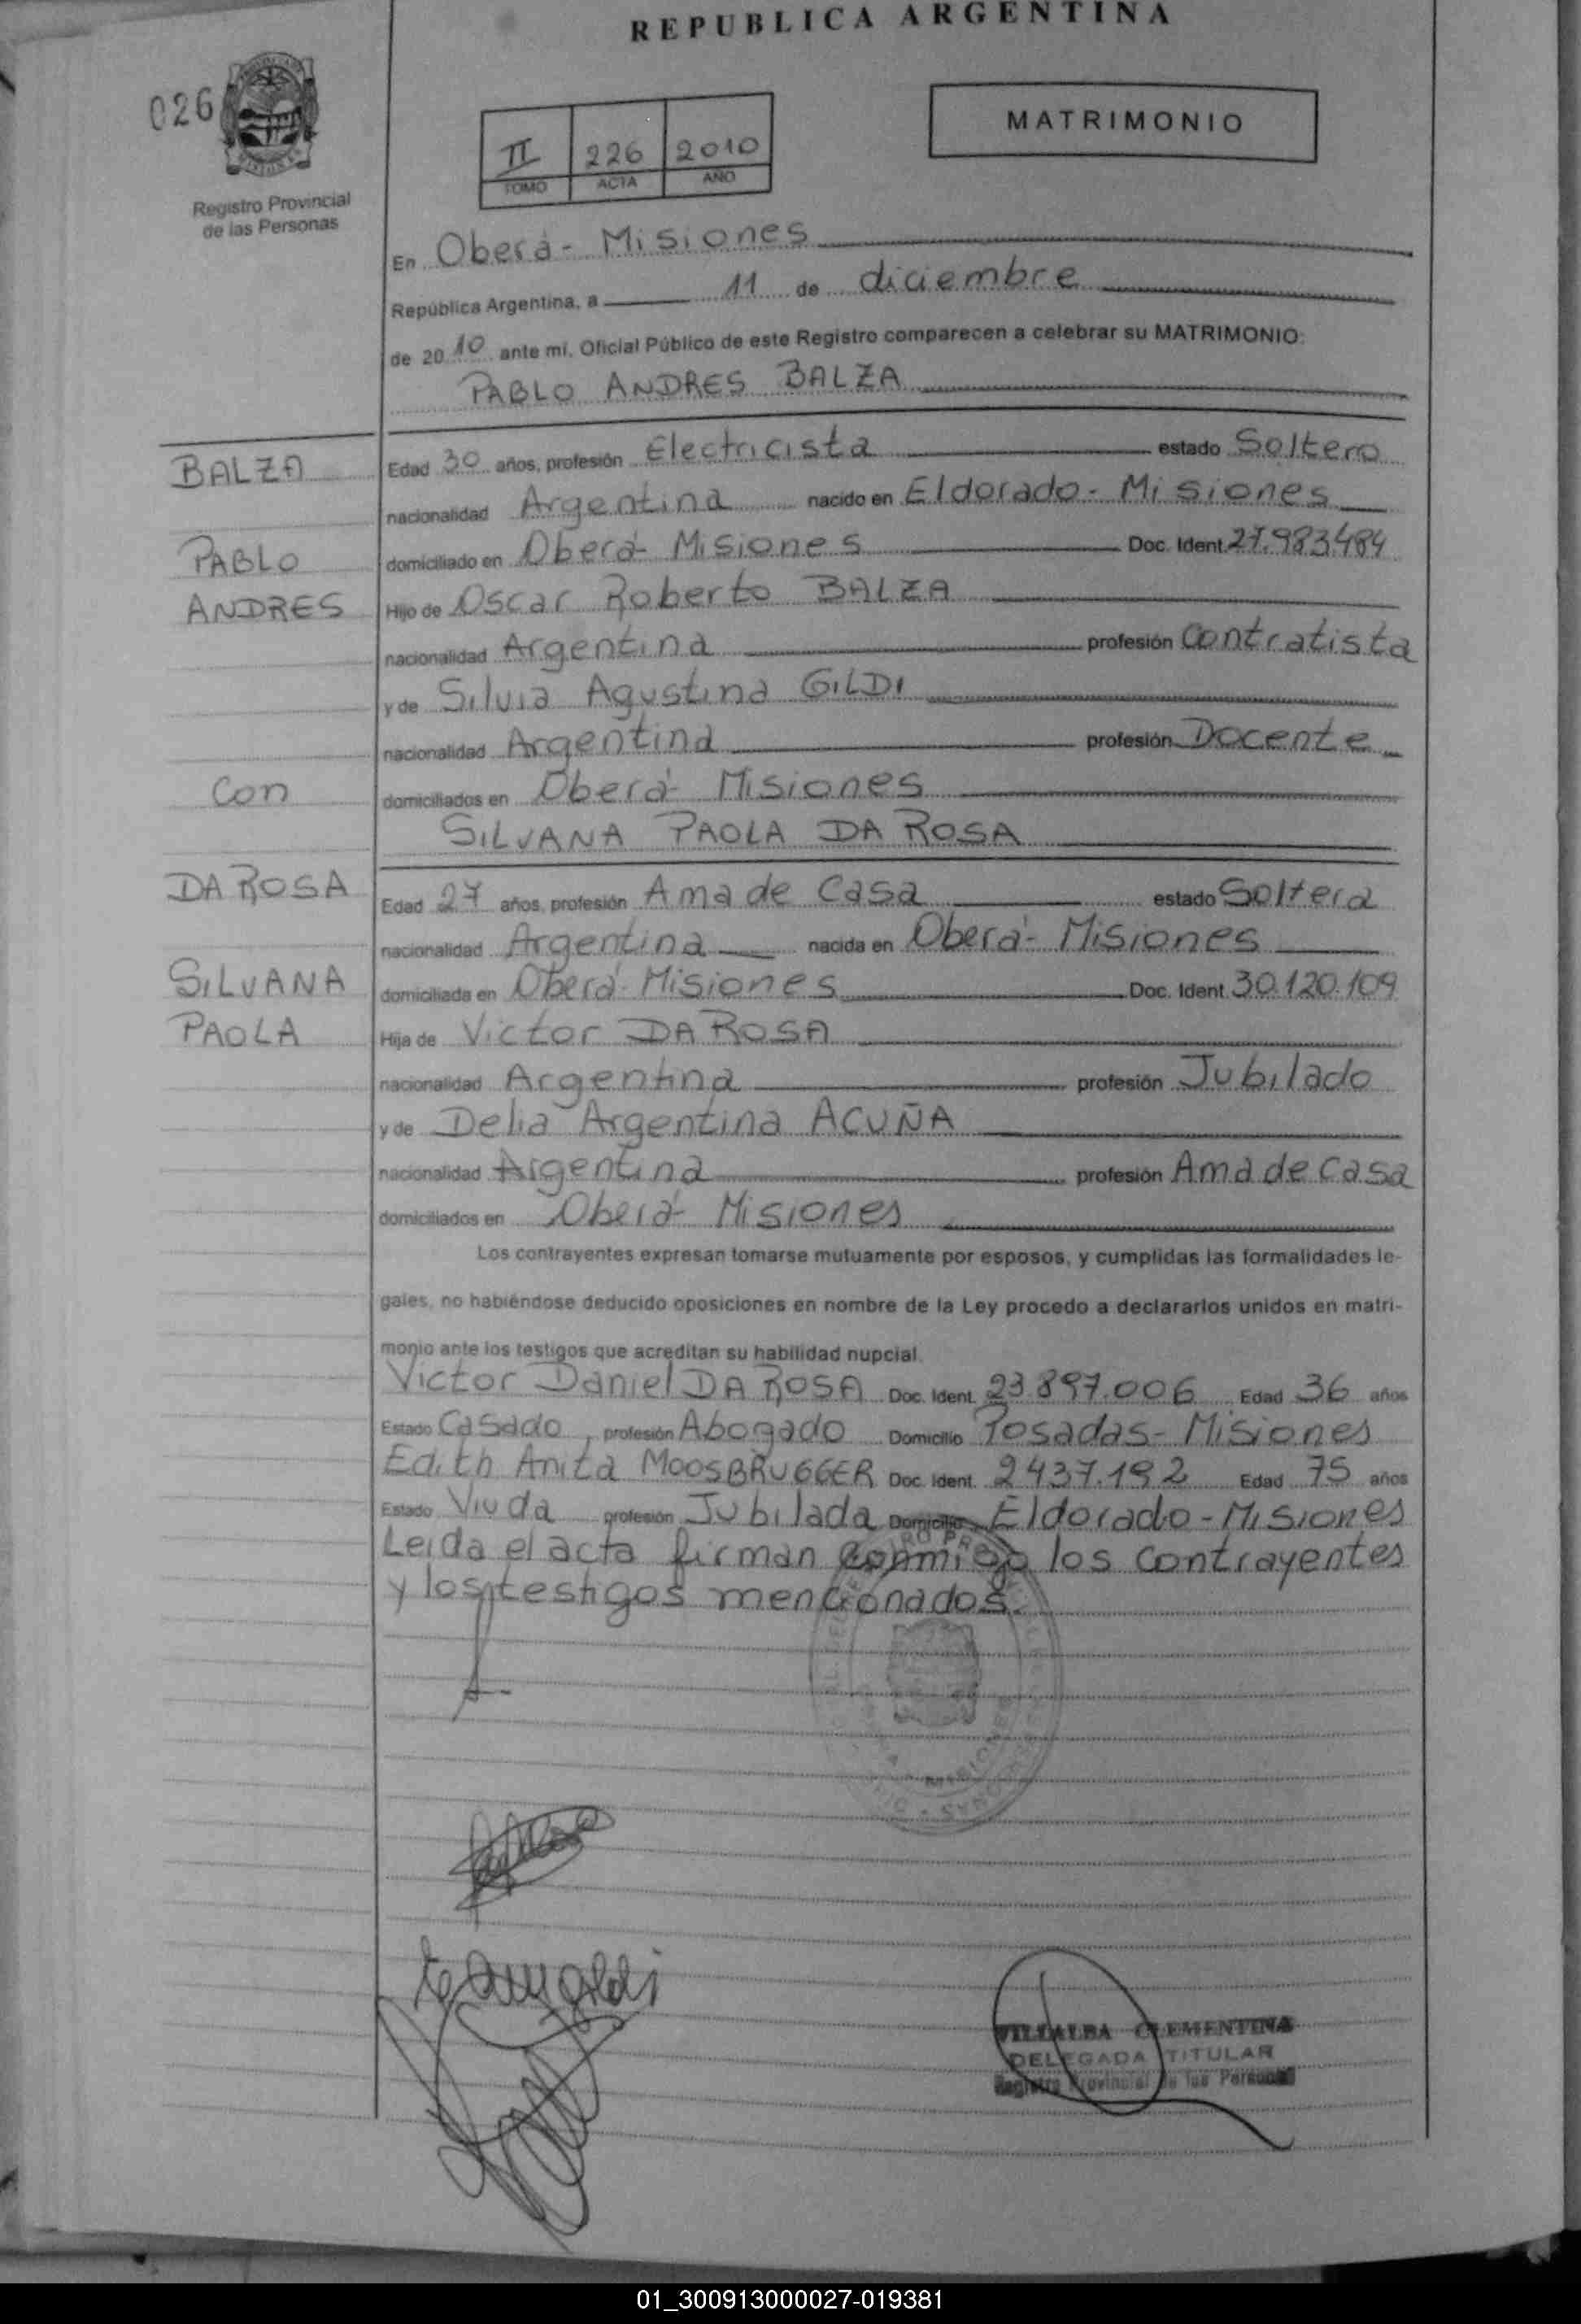 REPUBLICA ARGENTINA
026
MATRIMONIO
II 226 2010
TOMO ACTA AÑO
Registro Provincial
de las Personas
En Oberá - Misiones
República Argentina, a 11 de diciembre
de 2010 ante mí, Oficial Público de este Registro comparecen a celebrar su MATRIMONIO:
PABLO ANDRES BALZA
BALZA
Edad 30 años, profesión Electricista estado Soltero
nacionalidad Argentina nacido en Eldorado - Misiones
PABLO
domiciliado en Oberá - Misiones Doc. Ident. 27.983.484
ANDRES
Hijo de Oscar Roberto BALZA
nacionalidad Argentina profesión Contratista
y de Silvia Agustina GILDI
nacionalidad Argentina profesión Docente
Con
domiciliados en Oberá - Misiones
SILVANA PAOLA DA ROSA
DA ROSA
Edad 27 años, profesión Ama de Casa estado Soltera
nacionalidad Argentina nacida en Oberá - Misiones
SILVANA
domiciliada en Oberá - Misiones Doc. Ident. 30.120.109
PAOLA
Hija de Victor DA ROSA
nacionalidad Argentina profesión Jubilado
y de Delia Argentina ACUÑA
nacionalidad Argentina profesión Ama de Casa
domiciliados en Oberá - Misiones
Los contrayentes expresan tomarse mutuamente por esposos, y cumplidas las formalidades le-
gales, no habiéndose deducido oposiciones en nombre de la Ley procedo a declararlos unidos en matri-
monio ante los testigos que acreditan su habilidad nupcial.
Victor Daniel DA ROSA Doc. Ident. 23.897.006 Edad 36 años
Estado Casado, profesión Abogado Domicilio Posadas - Misiones
Edith Anita MOOSBRUGGER Doc. Ident. 2437.192 Edad 75 años
Estado Viuda profesión Jubilada Domicilio Eldorado - Misiones
Leida el acta firman conmigo los contrayentes
y los testigos mencionados.
VILLALBA CLEMENTINA
DELEGADA TITULAR
Registro Provincial de las Personas
01_300913000027-019381